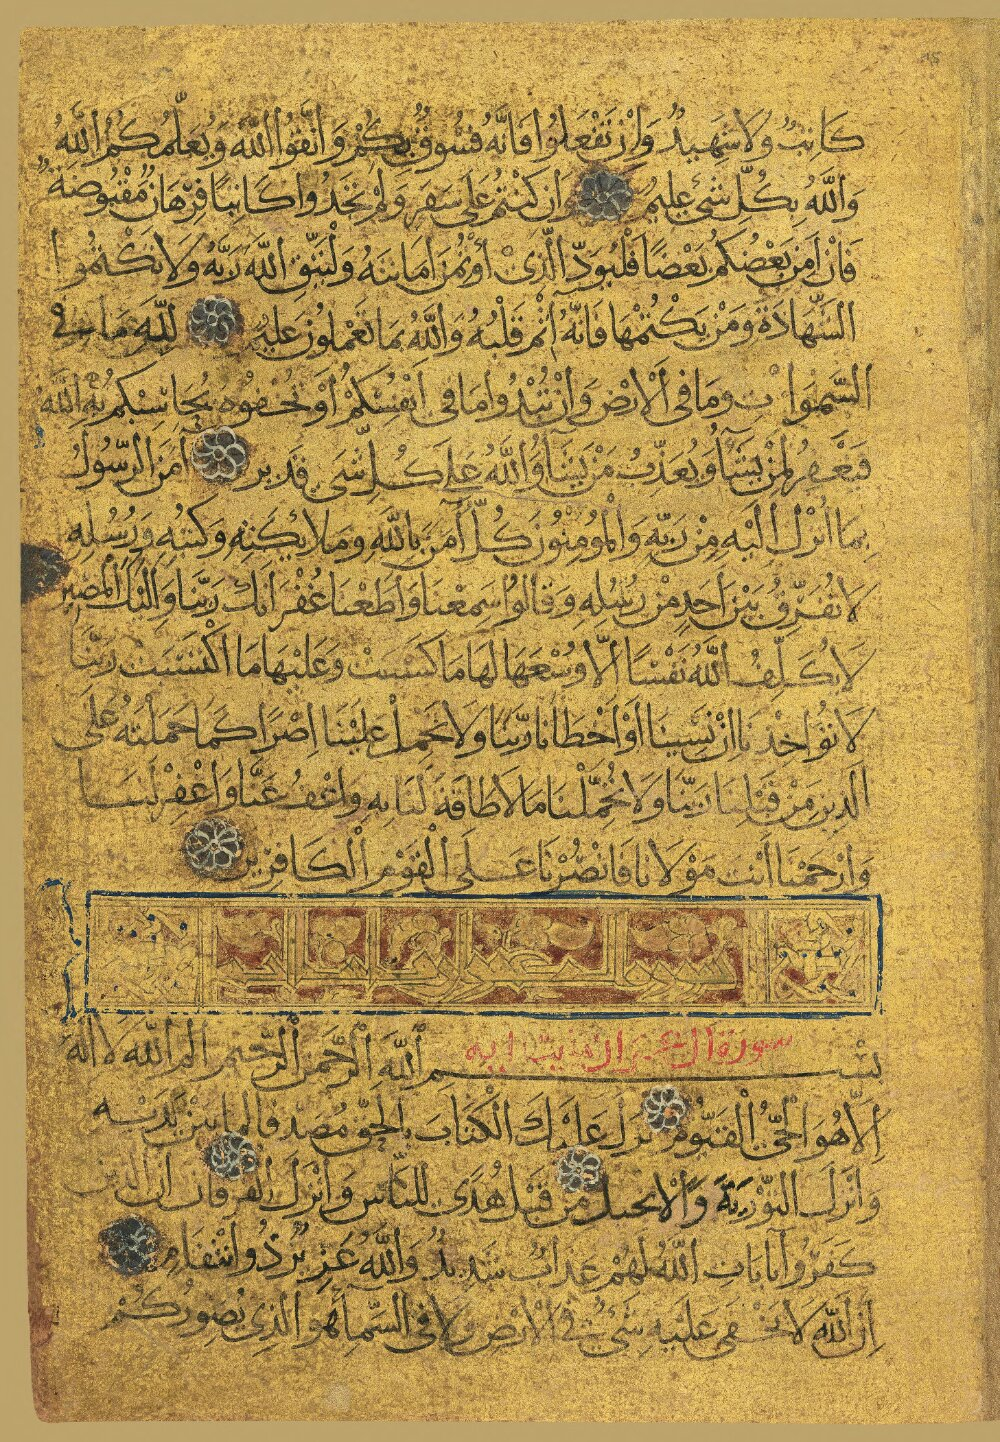 كَاتِبٌ وَلَا شَهِيدٌ وَاِنْ تَفْعَلُوا فَاِنَّهُ فُسُوقٌ بِكُمْ وَاتَّقُوا اللّٰهَ وَيُعَلِّمُكُمُ اللّٰهُ
وَاللّٰهُ بِكُلِّ شَيْءٍ عَلِيمٌ وَاِنْ كُنْتُمْ عَلَى سَفَرٍ وَلَمْ تَجِدُوا كَاتِبًا فَرِهَانٌ مَقْبُوضَةٌ
فَاِنْ اَمِنَ بَعْضُكُمْ بَعْضًا فَلْيُؤَدِّ الَّذِي اؤْتُمِنَ اَمَانَتَهُ وَلْيَتَّقِ اللّٰهَ رَبَّهُ وَلَا تَكْتُمُوا
الشَّهَادَةَ وَمَنْ يَكْتُمْهَا فَاِنَّهُ اٰثِمٌ قَلْبُهُ وَاللّٰهُ بِمَا تَعْمَلُونَ عَلِيمٌ لِلّٰهِ مَا فِي
السَّمٰوَاتِ وَمَا فِي الْاَرْضِ وَاِنْ تُبْدُوا مَا فِي اَنْفُسِكُمْ اَوْ تُخْفُوهُ يُحَاسِبْكُمْ بِهِ اللّٰهُ
فَيَغْفِرُ لِمَنْ يَشَآءُ وَيُعَذِّبُ مَنْ يَشَآءُ وَاللّٰهُ عَلَى كُلِّ شَيْءٍ قَدِيرٌ آمَنَ الرَّسُولُ
بِمَا اُنْزِلَ اِلَيْهِ مِنْ رَبِّهِ وَالْمُؤْمِنُونَ كُلٌّ آمَنَ بِاللّٰهِ وَمَلَائِكَتِهِ وَكُتُبِهِ وَرُسُلِهِ
لَا نُفَرِّقُ بَيْنَ اَحَدٍ مِنْ رُسُلِهِ وَقَالُوا سَمِعْنَا وَاَطَعْنَا غُفْرَانَكَ رَبَّنَا وَاِلَيْكَ الْمَصِيرُ
لَا يُكَلِّفُ اللّٰهُ نَفْسًا اِلَّا وُسْعَهَا لَهَا مَا كَسَبَتْ وَعَلَيْهَا مَا اكْتَسَبَتْ رَبَّنَا
لَا تُؤَاخِذْنَا اِنْ نَسِينَا اَوْ اَخْطَأْنَا رَبَّنَا وَلَا تَحْمِلْ عَلَيْنَا اِصْرًا كَمَا حَمَلْتَهُ عَلَى
الَّذِينَ مِنْ قَبْلِنَا رَبَّنَا وَلَا تُحَمِّلْنَا مَا لَا طَاقَةَ لَنَا بِهِ وَاعْفُ عَنَّا وَاغْفِرْ لَنَا
وَارْحَمْنَا اَنْتَ مَوْلَانَا فَانْصُرْنَا عَلَى الْقَوْمِ الْكَافِرِينَ
سورة ال عمران
سورة آل عمران مايتا ايه
بِسْمِ اللّٰهِ الرَّحْمٰنِ الرَّحِيمِ الم اللّٰهُ لَا اِلٰهَ
اِلَّا هُوَ الْحَيُّ الْقَيُّومُ نَزَّلَ عَلَيْكَ الْكِتَابَ بِالْحَقِّ مُصَدِّقًا لِمَا بَيْنَ يَدَيْهِ
وَاَنْزَلَ التَّوْرٰيةَ وَالْاِنْجِيلَ مِنْ قَبْلُ هُدًى لِلنَّاسِ وَاَنْزَلَ الْفُرْقَانَ اِنَّ الَّذِينَ
كَفَرُوا بِآيَاتِ اللّٰهِ لَهُمْ عَذَابٌ شَدِيدٌ وَاللّٰهُ عَزِيزٌ ذُو انْتِقَامٍ
اِنَّ اللّٰهَ لَا يَخْفَى عَلَيْهِ شَيْءٌ فِي الْاَرْضِ وَلَا فِي السَّمَآءِ هُوَ الَّذِي يُصَوِّرُكُمْ